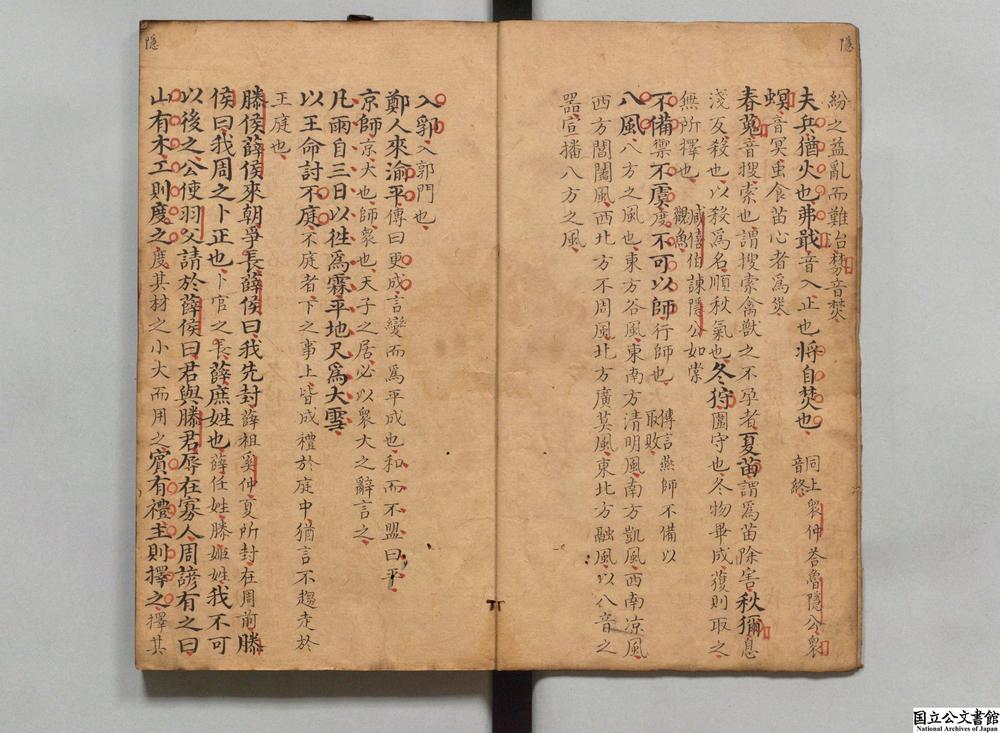 隱
紛之益亂而難治棼音焚
夫兵猶火也弗戢音入正也將自焚也同上
音終衆仲荅魯隱公衆
螟音冥虫食苗心者為災
春蒐音搜索也謂搜索禽獸之不孕者夏苗謂為苗除害秋獮息
淺反殺也以殺為名順秋氣也冬狩圍守也冬物畢成獲則取之
無所擇也臧僖伯諫隱公如棠
觀魚
不備禦不虞度不可以師行師也傳言燕師不備以
取敗
八風八方之風也東方谷風東南方清明風南方凱風西南凉風
西方閶闔風西北方不周風北方廣莫風東北方融風以八音之
噐宣播八方之風
隱
入郛入郭門也
鄭人來渝平傳曰更成言變而為平成也和而不盟曰平
京師京大也師衆也天子之居必以衆大之辭言之
凡雨自三日以徃為霖平地尺為大雪
以王命討不庭不庭者下之事上皆成禮於庭中猶言不趨走於
王庭也
滕侯薛侯來朝爭長薛侯曰我先封薛祖奚仲夏所封在周前滕
侯曰我周之卜正也卜官之長薛庶姓也薛任姓滕姬姓我不可
以後之公使羽父請於薛侯曰君與滕君辱在寡人周諺有之曰
山有木工則度之度其材之小大而用之賓有禮主則擇之擇其
国立公文書館
National Archives of Japan